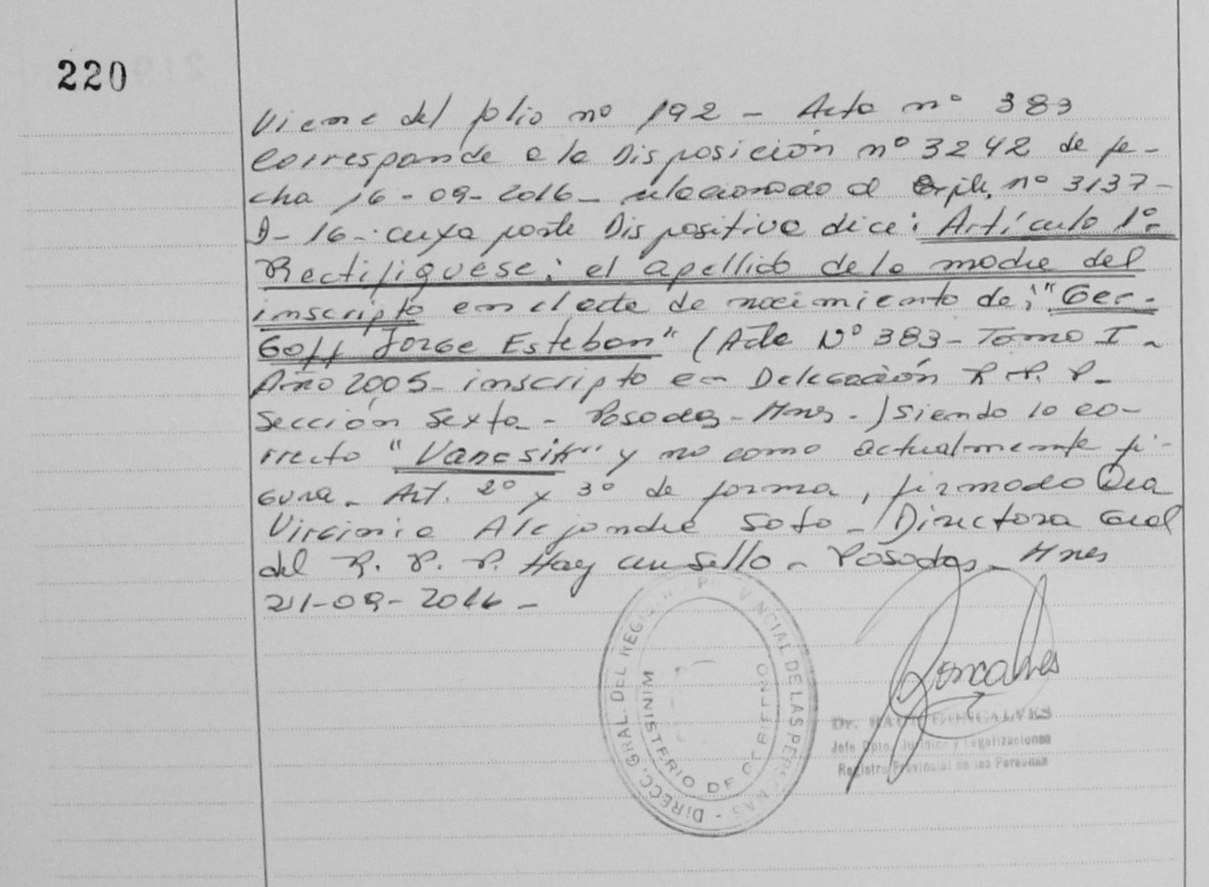 220
Viene del folio nº 192 - Acta nº 383
corresponde a la Disposición nº 3242 de fe-
cha 16-09-2016 - relacionado al Expte. nº 3137-
D-16-. cuya parte Dispositiva dice: Artículo 1º-
Rectifíquese: el apellido de la madre del
inscripto en el acta de nacimiento de: "Ger-
Goff Jorge Esteban" (Acta Nº 383 - Tomo I -
Año 2005 - inscripto en Delegación R.P.P.
Sección Sexta - Posadas - Mnes -) siendo lo co-
rrecto "Vanesik" y no como actualmente fi-
gura. Art. 2º y 3º de forma, firmado Dra
Virginia Alejandra Soto - Directora Gral
del R. P. P. Hay un sello - Posadas - Mnes
21-09-2016 -
DIRECC. GRAL. DEL REGIS PROVINCIAL DE LAS PERSONAS
MINISTERIO DE GOBIERNO
Goncalves
Dr.
Jefe Dpto. Jurídico y Legalizaciones
Registro Provincial de las Personas